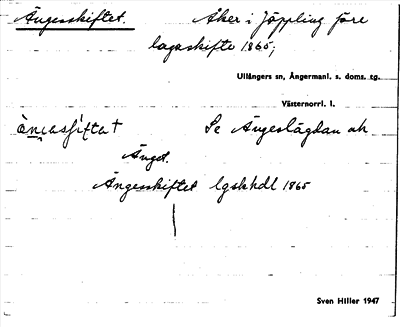 Ängesskiftet. Åker i Jöppling före
lagaskifte 1865;
Ullångers sn, Ångermanl. s. doms. tg.
Västernorrl. l.
Se Ängeslägdan och
Änget.
Ängesskiftet lgskhdl 1865
Sven Hiller 1947